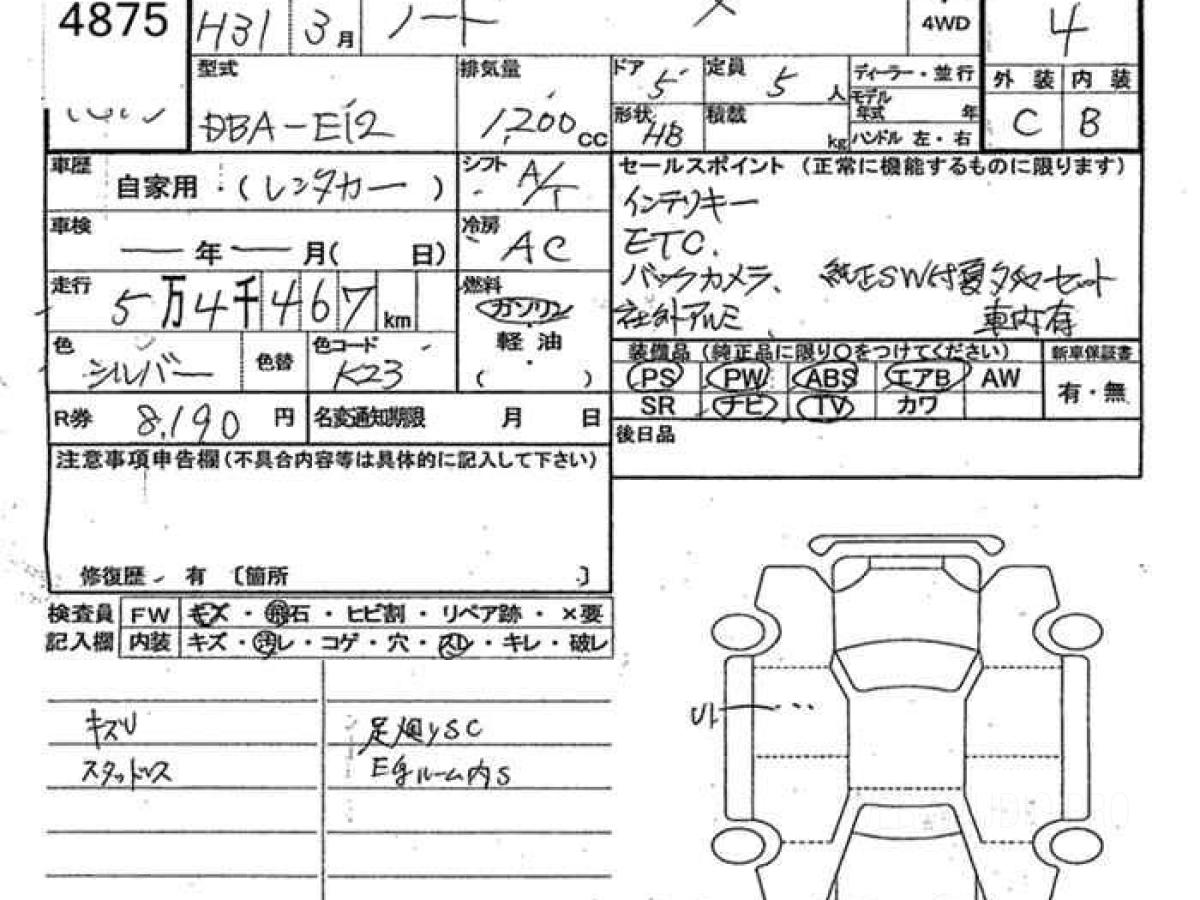 4875
H31 3月 ノート X 4WD 4
型式 DBA-E12
排気量 1,200cc
ドア 5 定員 5人
形状 HB 積載 kg
ディーラー・並行
モデル年式 年
ハンドル 左・右
外装 内装
C B
車歴 自家用・(レンタカー)
シフト A/T
セールスポイント (正常に機能するものに限ります)
インテリキー
ETC.
バックカメラ、純正SW付夏タイヤセット
社外アルミ 車内有
車検 ー年ー月( 日)
冷房 AC
走行 5万4千467km
燃料 ガソリン
軽油
( )
色 シルバー 色替 色コード K23
装備品 (純正品に限り○をつけてください) 新車保証書
PS PW ABS エアB AW 有・無
SR ナビ TV カワ
R券 8,190円 名変通知期限 月 日
後日品
注意事項申告欄(不具合内容等は具体的に記入して下さい)
修復歴 有 〔箇所 〕
検査員 FW キズ・飛石・ヒビ割・リペア跡・×要
記入欄 内装 キズ・汚レ・コゲ・穴・スレ・キレ・破レ
キズU
スタッドレス
足廻りSC
Eルーム内S
U1